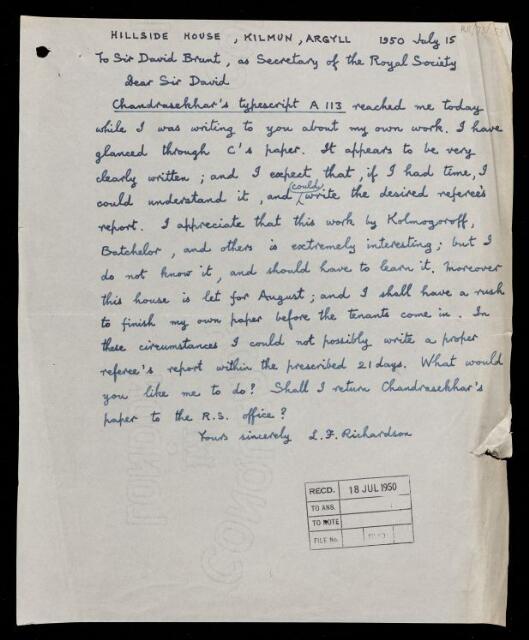 HILLSIDE HOUSE, KILMUN, ARGYLL 1950 July 15
To Sir David Brunt, as Secretary of the Royal Society
Dear Sir David
Chandrasekhar's typescript A 113 reached me today
while I was writing to you about my own work. I have
glanced through C's paper. It appears to be very
clearly written; and I expect that, if I had time, I
could understand it, and could write the desired referee's
report. I appreciate that this work by Kolmogoroff,
Batchelor, and others is extremely interesting; but I
do not know it, and should have to learn it. Moreover
this house is let for August; and I shall have a rush
to finish my own paper before the tenants come in. In
these circumstances I could not possibly write a proper
referee's report within the prescribed 21 days. What would
you like me to do? Shall I return Chandrasekhar's
paper to the R.S. office?
Yours sincerely L.F. Richardson
RECD. 18 JUL 1950
TO ANS.
TO NOTE
FILE No.